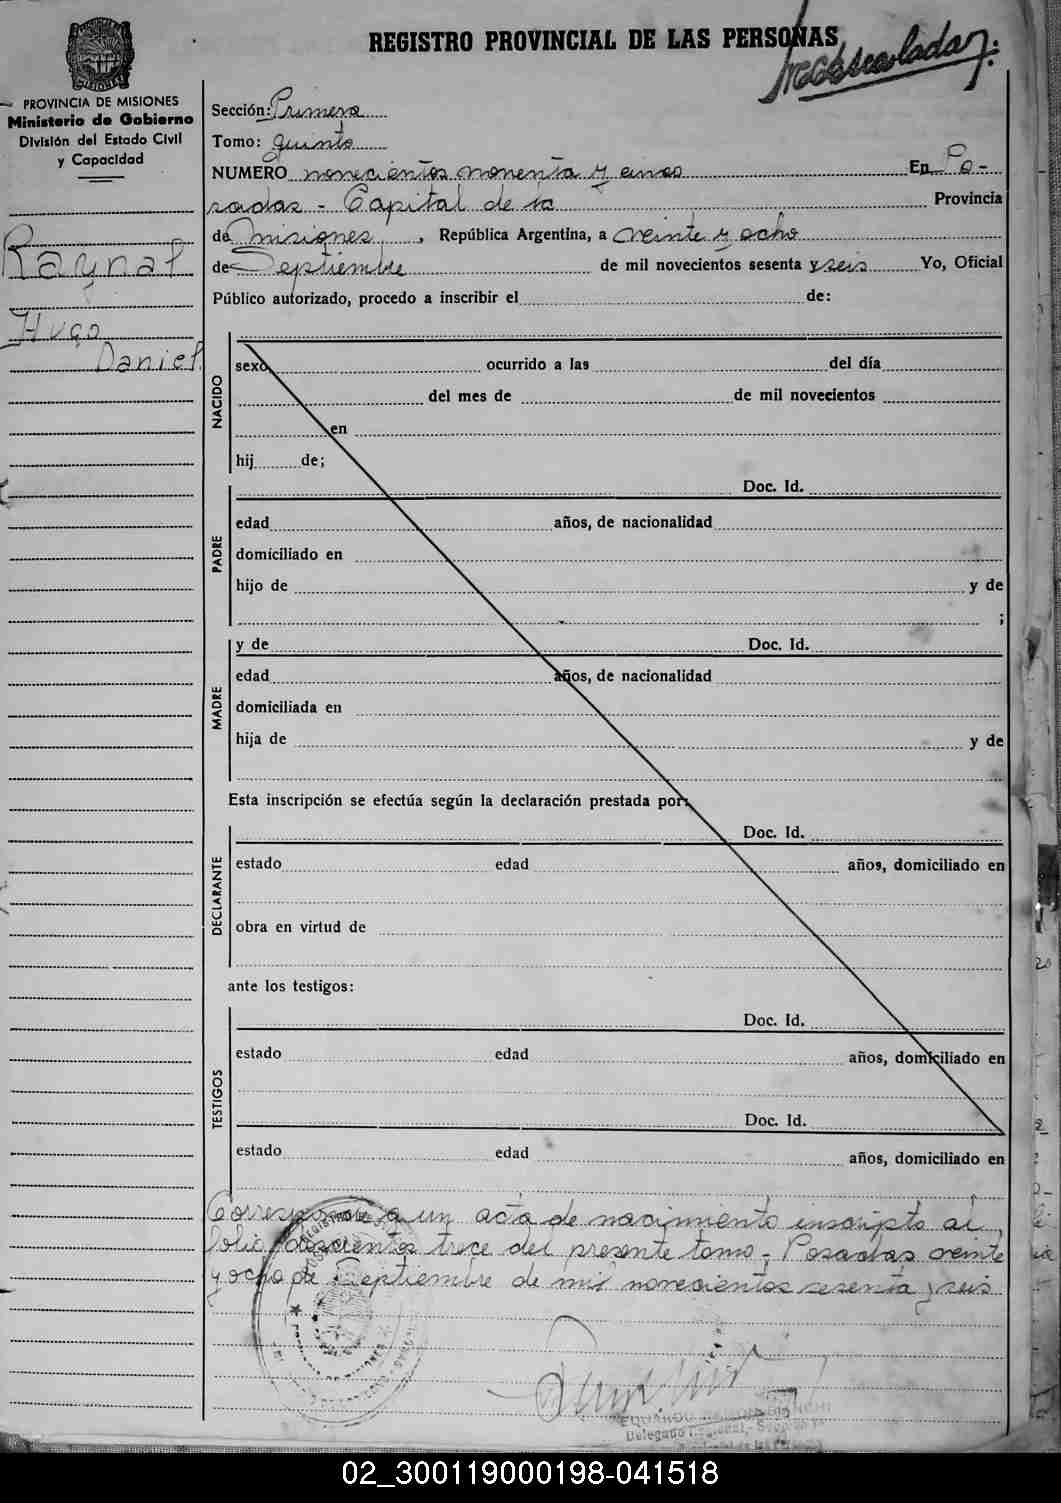 REGISTRO PROVINCIAL DE LAS PERSONAS
PROVINCIA DE MISIONES
Ministerio de Gobierno
División del Estado Civil
y Capacidad
Raynal
Hugo
Daniel
Sección: Primera
Tomo: quinto
NUMERO novecientos noventa y cinco En Po-
sadas - Capital de la Provincia
de Misiones, República Argentina, a veinte y ocho
de Septiembre de mil novecientos sesenta y seis Yo, Oficial
Público autorizado, procedo a inscribir el de:
NACIDO
sexo ocurrido a las del día
del mes de de mil novecientos
en
hij de;
PADRE
Doc. Id.
edad años, de nacionalidad
domiciliado en
hijo de y de
;
MADRE
y de Doc. Id.
edad años, de nacionalidad
domiciliada en
hija de y de
Esta inscripción se efectúa según la declaración prestada por:
DECLARANTE
Doc. Id.
estado edad años, domiciliado en
obra en virtud de
ante los testigos:
TESTIGOS
Doc. Id.
estado edad años, domiciliado en
Doc. Id.
estado edad años, domiciliado en
Corresponde a un acta de nacimiento inscripto al
folio doscientos trece del presente tomo - Posadas veinte
y ocho de Septiembre de mil novecientos sesenta y seis
EDUARDO
Delegado
02_300119000198-041518